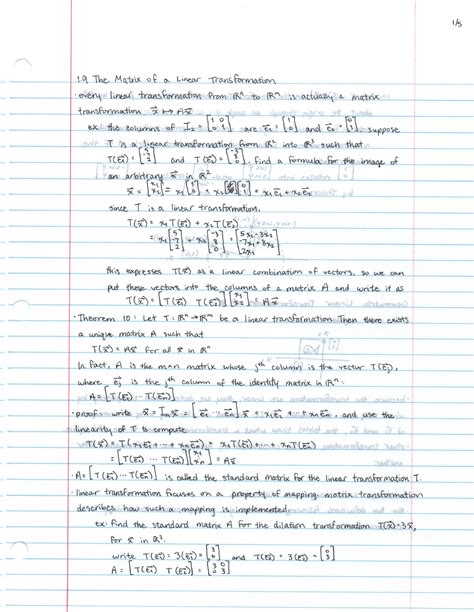 1/5
1.9 The Matrix of a Linear Transformation
· every linear transformation from ℝⁿ to ℝᵐ is actually a matrix
transformation x⃗ ↦ Ax⃗
ex: the columns of I₂ = [1 0; 0 1] are e⃗₁ = [1; 0] and e⃗₂ = [0; 1]. suppose
T is a linear transformation from ℝ² into ℝ³ such that
T(e⃗₁) = [5; -7; 2] and T(e⃗₂) = [-3; 8; 0]. find a formula for the image of
an arbitrary x⃗ in ℝ².
x⃗ = [x₁; x₂] = x₁[1; 0] + x₂[0; 1] = x₁e⃗₁ + x₂e⃗₂
since T is a linear transformation.
T(x⃗) = x₁T(e⃗₁) + x₂T(e⃗₂)
= x₁[5; -7; 2] + x₂[-3; 8; 0] = [5x₁ - 3x₂; -7x₁ + 8x₂; 2x₁]
this expresses T(x⃗) as a linear combination of vectors, so we can
put these vectors into the columns of a matrix A and write it as
T(x⃗) = [T(e⃗₁) T(e⃗₂)][x₁; x₂] = Ax⃗
· Theorem 10: Let T: ℝⁿ → ℝᵐ be a linear transformation. Then there exists
a unique matrix A such that
T(x⃗) = Ax⃗ for all x⃗ in ℝⁿ
· In fact, A is the m×n matrix whose jᵗʰ column is the vector T(e⃗ⱼ),
where e⃗ⱼ is the jᵗʰ column of the identity matrix in ℝⁿ.
A = [T(e⃗₁) ... T(e⃗ₙ)]
· proof: write x⃗ = Iₙx⃗ = [e⃗₁ ... e⃗ₙ]x⃗ = x₁e⃗₁ + ... + xₙe⃗ₙ, and use the
linearity of T to compute
T(x⃗) = T(x₁e⃗₁ + ... + xₙe⃗ₙ) = x₁T(e⃗₁) + ... + xₙT(e⃗ₙ)
= [T(e⃗₁) ... T(e⃗ₙ)][x₁; ⋮; xₙ] = Ax⃗
· A = [T(e⃗₁) ... T(e⃗ₙ)] is called the standard matrix for the linear transformation T.
· linear transformation focuses on a property of mapping. matrix transformation
describes how such a mapping is implemented
ex: Find the standard matrix A for the dilation transformation T(x⃗) = 3x⃗,
for x⃗ in ℝ².
write T(e⃗₁) = 3(e⃗₁) = [3; 0] and T(e⃗₂) = 3(e⃗₂) = [0; 3]
A = [T(e⃗₁) T(e⃗₂)] = [3 0; 0 3]